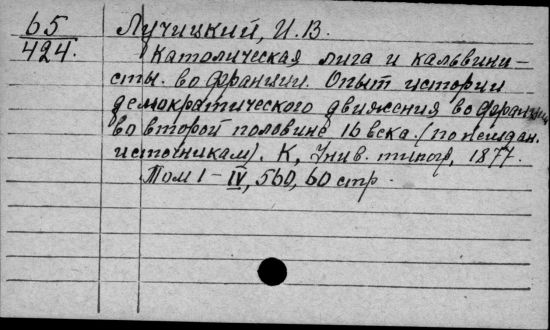 65
424.
Лучицкий, И. В.
Католическая лига и кальвини-
сты во Франции. Опыт истории
демократического движения во Франции
во второй половине 16 века. (по неиздан.
источникам). К, Унив. типогр, 1877.
Том I - IV, 560, 60 стр.